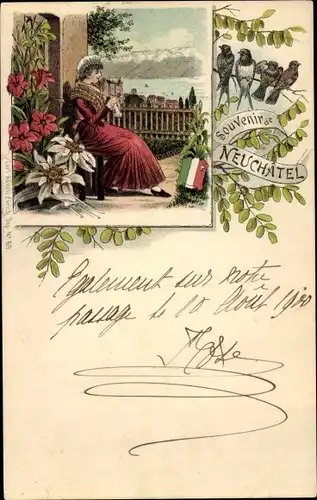 Souvenir de
NEUCHÂTEL
Egalement sur notre
passage le 10 Août 1900